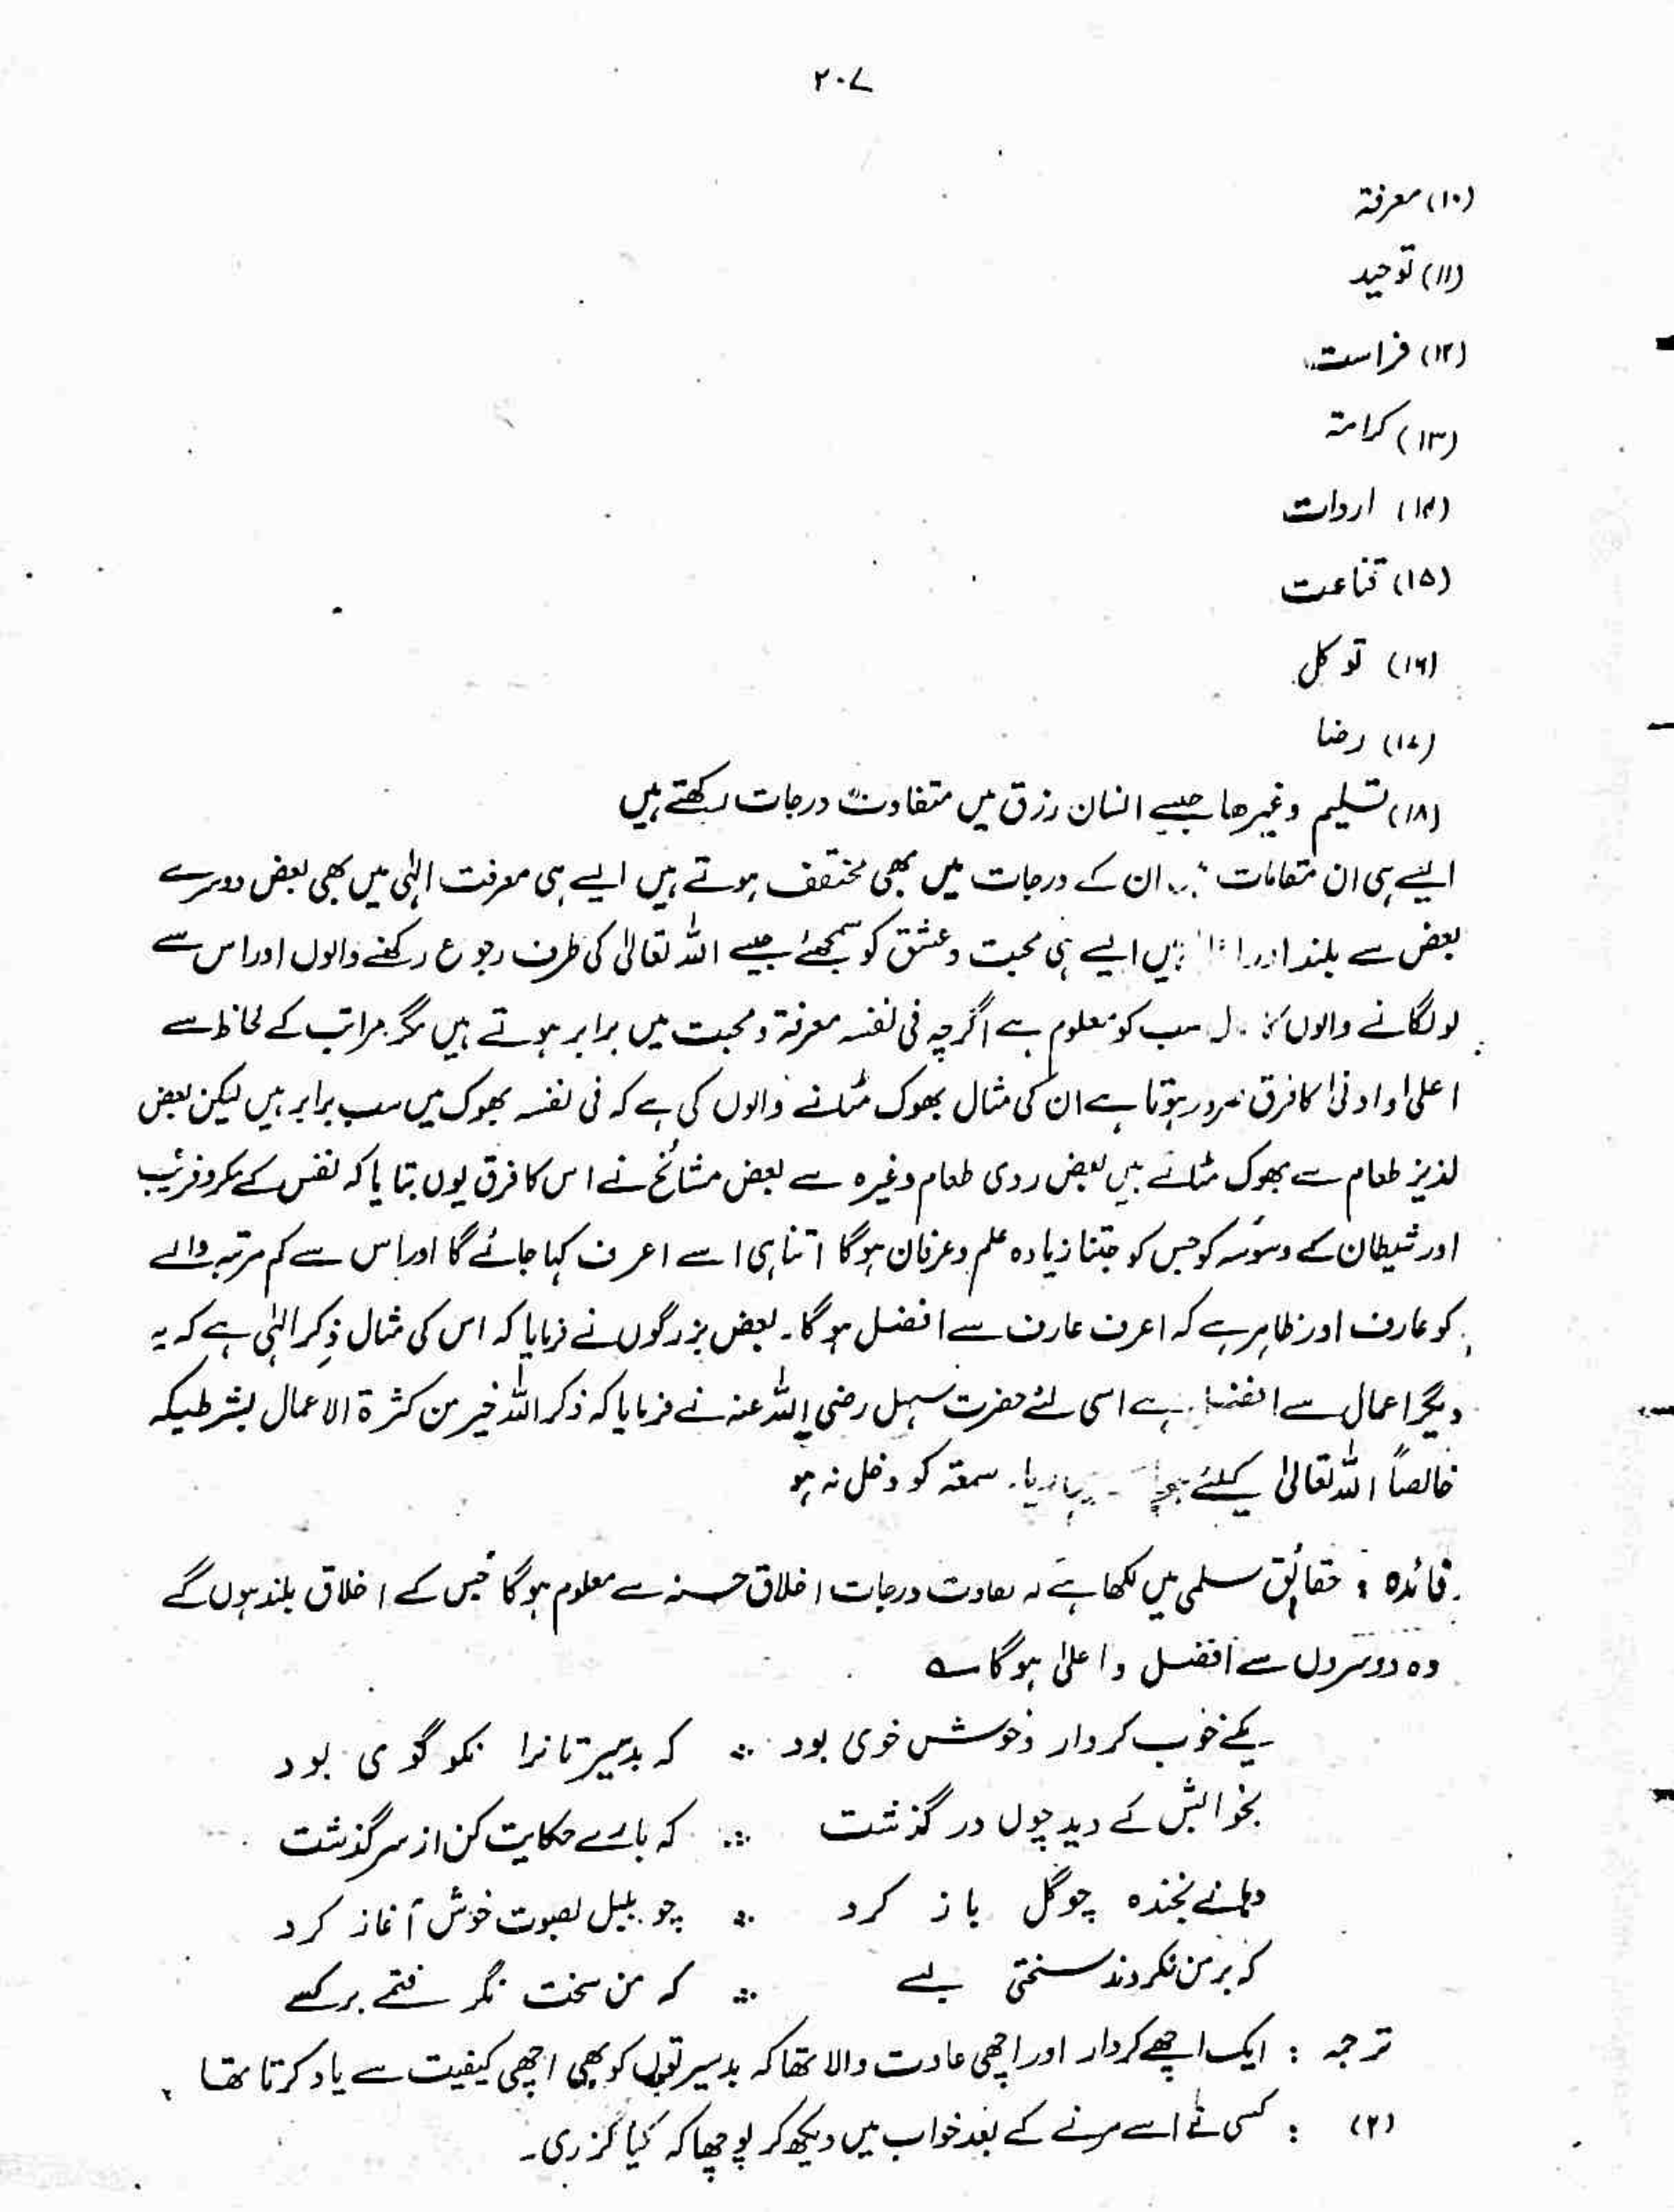 ۲۰۷
(۱۰) معرفتہ
(۱۱) توحید
(۱۲) فراست
(۱۳) کرامتہ
(۱۴) اردات
(۱۵) قناعت
(۱۶) توکل
(۱۷) رضا
(۱۸) تسلیم وغیرھا جیسے انسان رزق میں متفاوت درجات رکھتے ہیں
ایسے ہی ان مقامات ان کے درجات میں بھی مختلف ہوتے ہیں ایسے ہی معرفت الہٰی میں بھی بعض دوسرے
بعض سے بلند اور ہیں ایسے ہی محبت وعشق کو سمجھئے جیسے اللہ تعالیٰ کی طرف رجوع رکھنے والوں اور اس سے
لو لگانے والوں سب کو معلوم ہے اگرچہ فی نفسہ معرفتہ و محبت میں برابر ہوتے ہیں مگر مراتب کے لحاظ سے
اعلیٰ وادنیٰ کا فرق ضرور ہوتا ہے ان کی مثال بھوک مٹانے والوں کی ہے کہ فی نفسہ بھوک میں سب برابر ہیں لیکن بعض
لذیز طعام سے بھوک مٹاتے ہیں بعض ردی طعام وغیرہ سے بعض مشائخ نے اس کا فرق یوں بتایا کہ نفس کے مکروفریب
اور شیطان کے وسوسہ کو جس کو جتنا زیادہ علم وعرفان ہوگا اتنا ہی اسے اعرف کہا جائے گا اور اس سے کم مرتبہ والے
کو عارف اور ظاہر ہے کہ اعرف عارف سے افضل ہوگا۔ بعض بزرگوں نے فرمایا کہ اس کی مثال ذکر الہٰی ہے کہ یہ
دیگر اعمال سے افضل ہے اسی لئے حضرت سہل رضی اللہ عنہ نے فرمایا کہ ذکر اللہ خیر من کثرۃ الاعمال بشرطیکہ
خالصاً اللہ تعالیٰ کیلئے ہو ریا۔ سمعتہ کو دخل نہ ہو
فائدہ : حقائق سلمی میں لکھا ہے درجات اخلاق حسنہ سے معلوم ہوگا جس کے اخلاق بلند ہوں گے
وہ دوسروں سے افضل واعلیٰ ہوگا ؎
یکے خوب کردار وخوش خوی بود ∴ کہ بدسیرتانرا نکو گوی بود
بخوابش کے دید چوں در گذشت ∴ کہ بارے حکایت کن از سرگذشت
دہانے بخندہ چو گل باز کرد ∴ چو بلبل بصوت خوش آغاز کرد
کہ برمن نکردند سختی بسے ∴ کہ من سخت نگرفتمے بر کسے
ترجمہ : ایک اچھے کردار اور اچھی عادت والا تھا کہ بدسیرتوں کو بھی اچھی کیفیت سے یاد کرتا تھا ،
(۲) : کسی نے اسے مرنے کے بعد خواب میں دیکھ کر پوچھا کہ کیا گزری۔